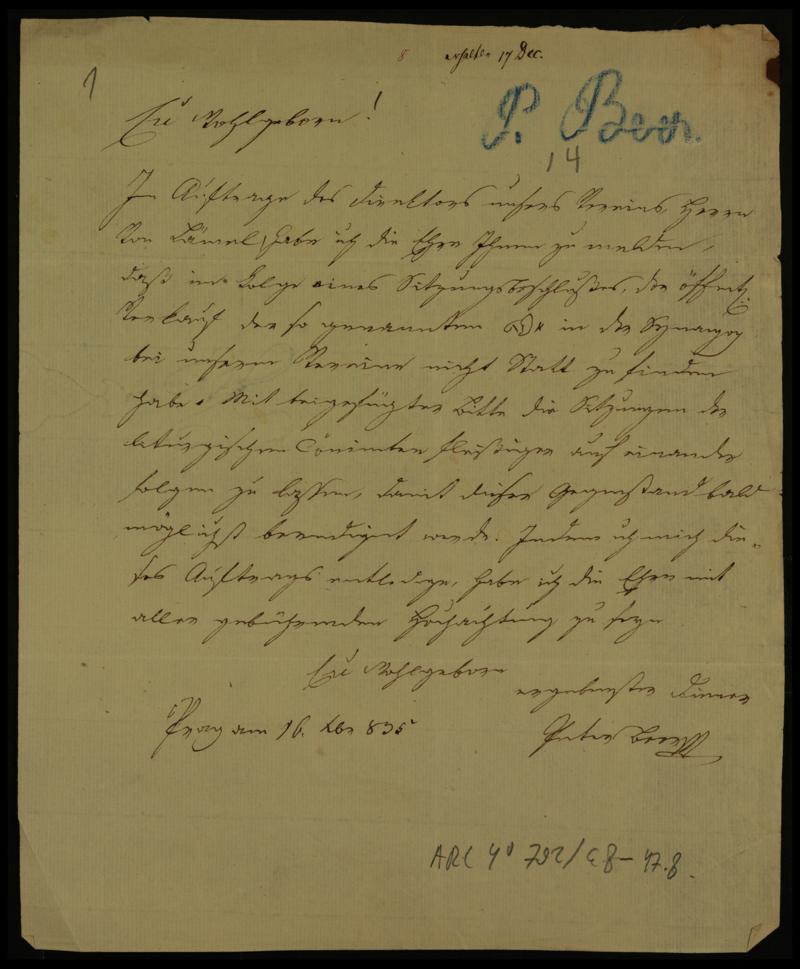 8 erhalten 17 Dec.
1
P. Beer.
14
Eu Wohlgeborn!
Im Auftrage des Direktors unsers Vereins, Herrn
Von Lämel, habe ich die Ehre Ihnen zu melden,
daß in Folge eines Sitzungsbeschlußes, der öffentl.
Verkauf der so genannten in der Synagog
bei unserm Vereine nicht Statt zu finden
habe. Mit beigefügter Bitte die Sitzungen des
liturgischen Comiteen fleißiger auf einander
folgen zu lassen, damit dieser Gegenstand bald
möglichst beendigt werde. Indem ich mich die-
ses Auftrags entledige, habe ich die Ehre mit
aller gebührenden Hochachtung zu seyn
Eu Wohlgeborn
ergebenster Diener
Prag am 16. Xbr 835
Peter Beer
ARC 4° 792/ 47.8.